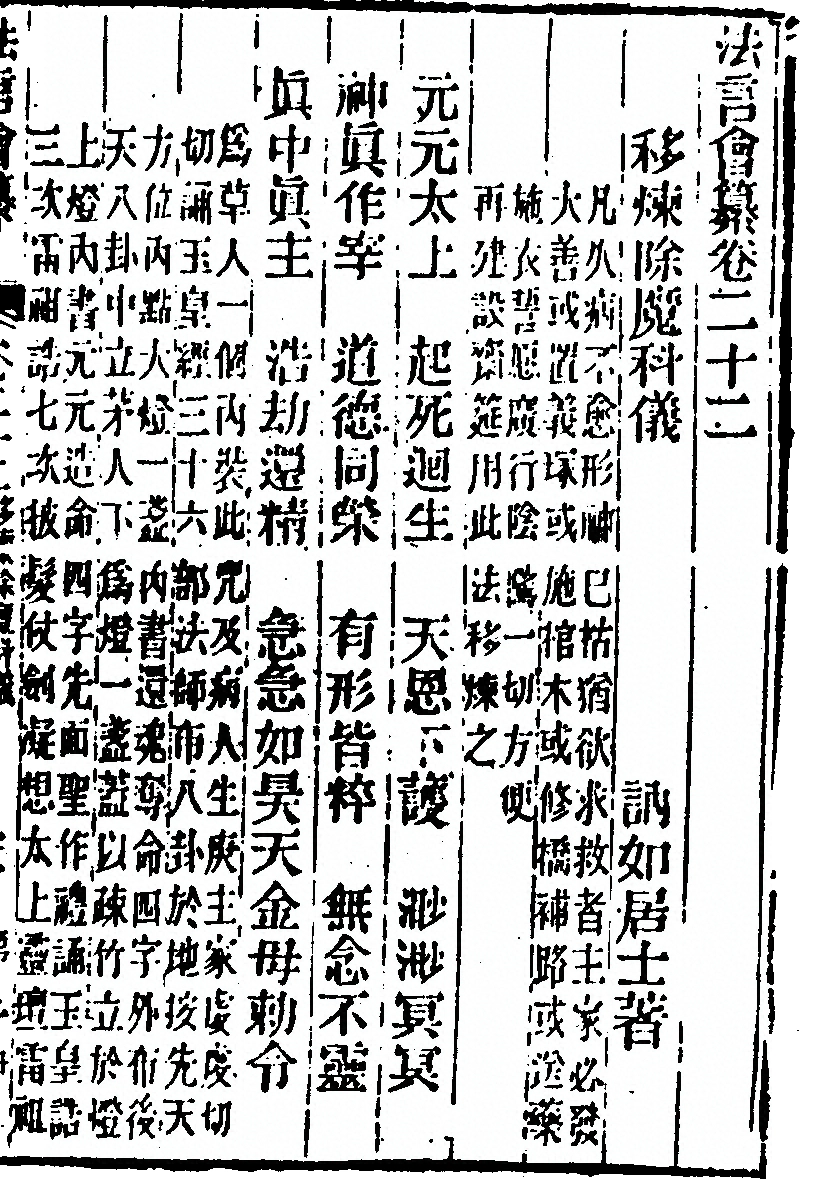 法言會纂卷二十二
移煉除魔科儀 訥如居士著
凡久病不愈形神已枯猶欲求救者主家必發
大善或置義塚或施棺木或修橋補路或送藥
施衣誓愿廣行陰騭一切方便
再建設齋筵用此法移煉之
元元太上 起死迴生 天恩下護 渺渺冥冥
神眞作宰 道德同榮 有形皆粹 無念不靈
眞中眞主 浩劫還精 急急如昊天金母勅令
爲草人一個內裝此咒及病人生庚主家虔虔切
切誦玉皇經三十六部法師布八卦於地按先天
方位內點大燈一盞內書還魂奪命四字外布後
天八卦中立茅人下爲燈一盞蓋以疎竹立於燈
上燈內書元元造命四字先面聖作禮誦玉皇誥
三次雷祖誥七次披髮仗劍凝想太上靈壇雷祖